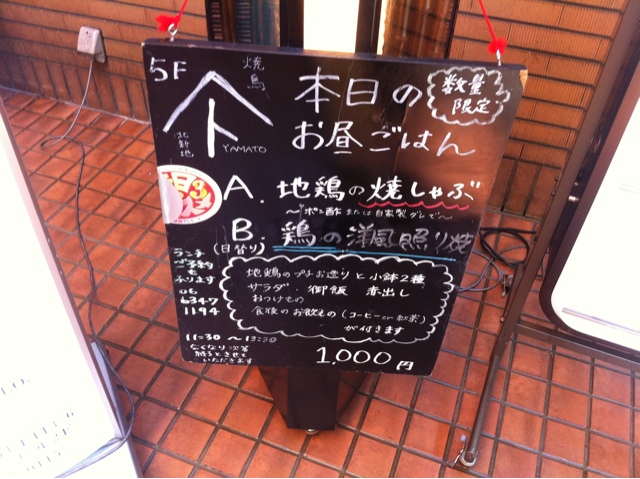 5F
焼鳥
ト
YAMATO
北新地
本日の
お昼ごはん
数量
限定
A. 地鶏の焼しゃぶ
〜ポン酢または自家製ダシで〜
B. 鶏の洋風照り焼
(日替り)
地鶏のプチお造りと小鉢2種
サラダ・御飯 赤出し
おつけもの
食後のお飲もの(コーヒーor紅茶)
が付きます
ランチ
ご予約
も
承ります
06
6347
1194
11:30 〜 13:30
なくなり次第
終了とさせて
いただきます
1,000円